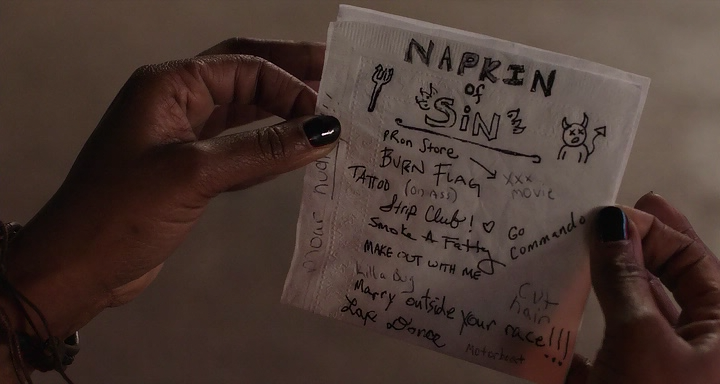 NAPKIN
of
SiN
pRon Store
XXX movie
BURN FLAG
TATTOO (on ASS)
Strip Club!
Go Commando
Smoke A Fatty
MAKE OUT WITH ME
kill a Bug
CUT hair
Marry outside your race!!!
Lap Dance
Motorboat